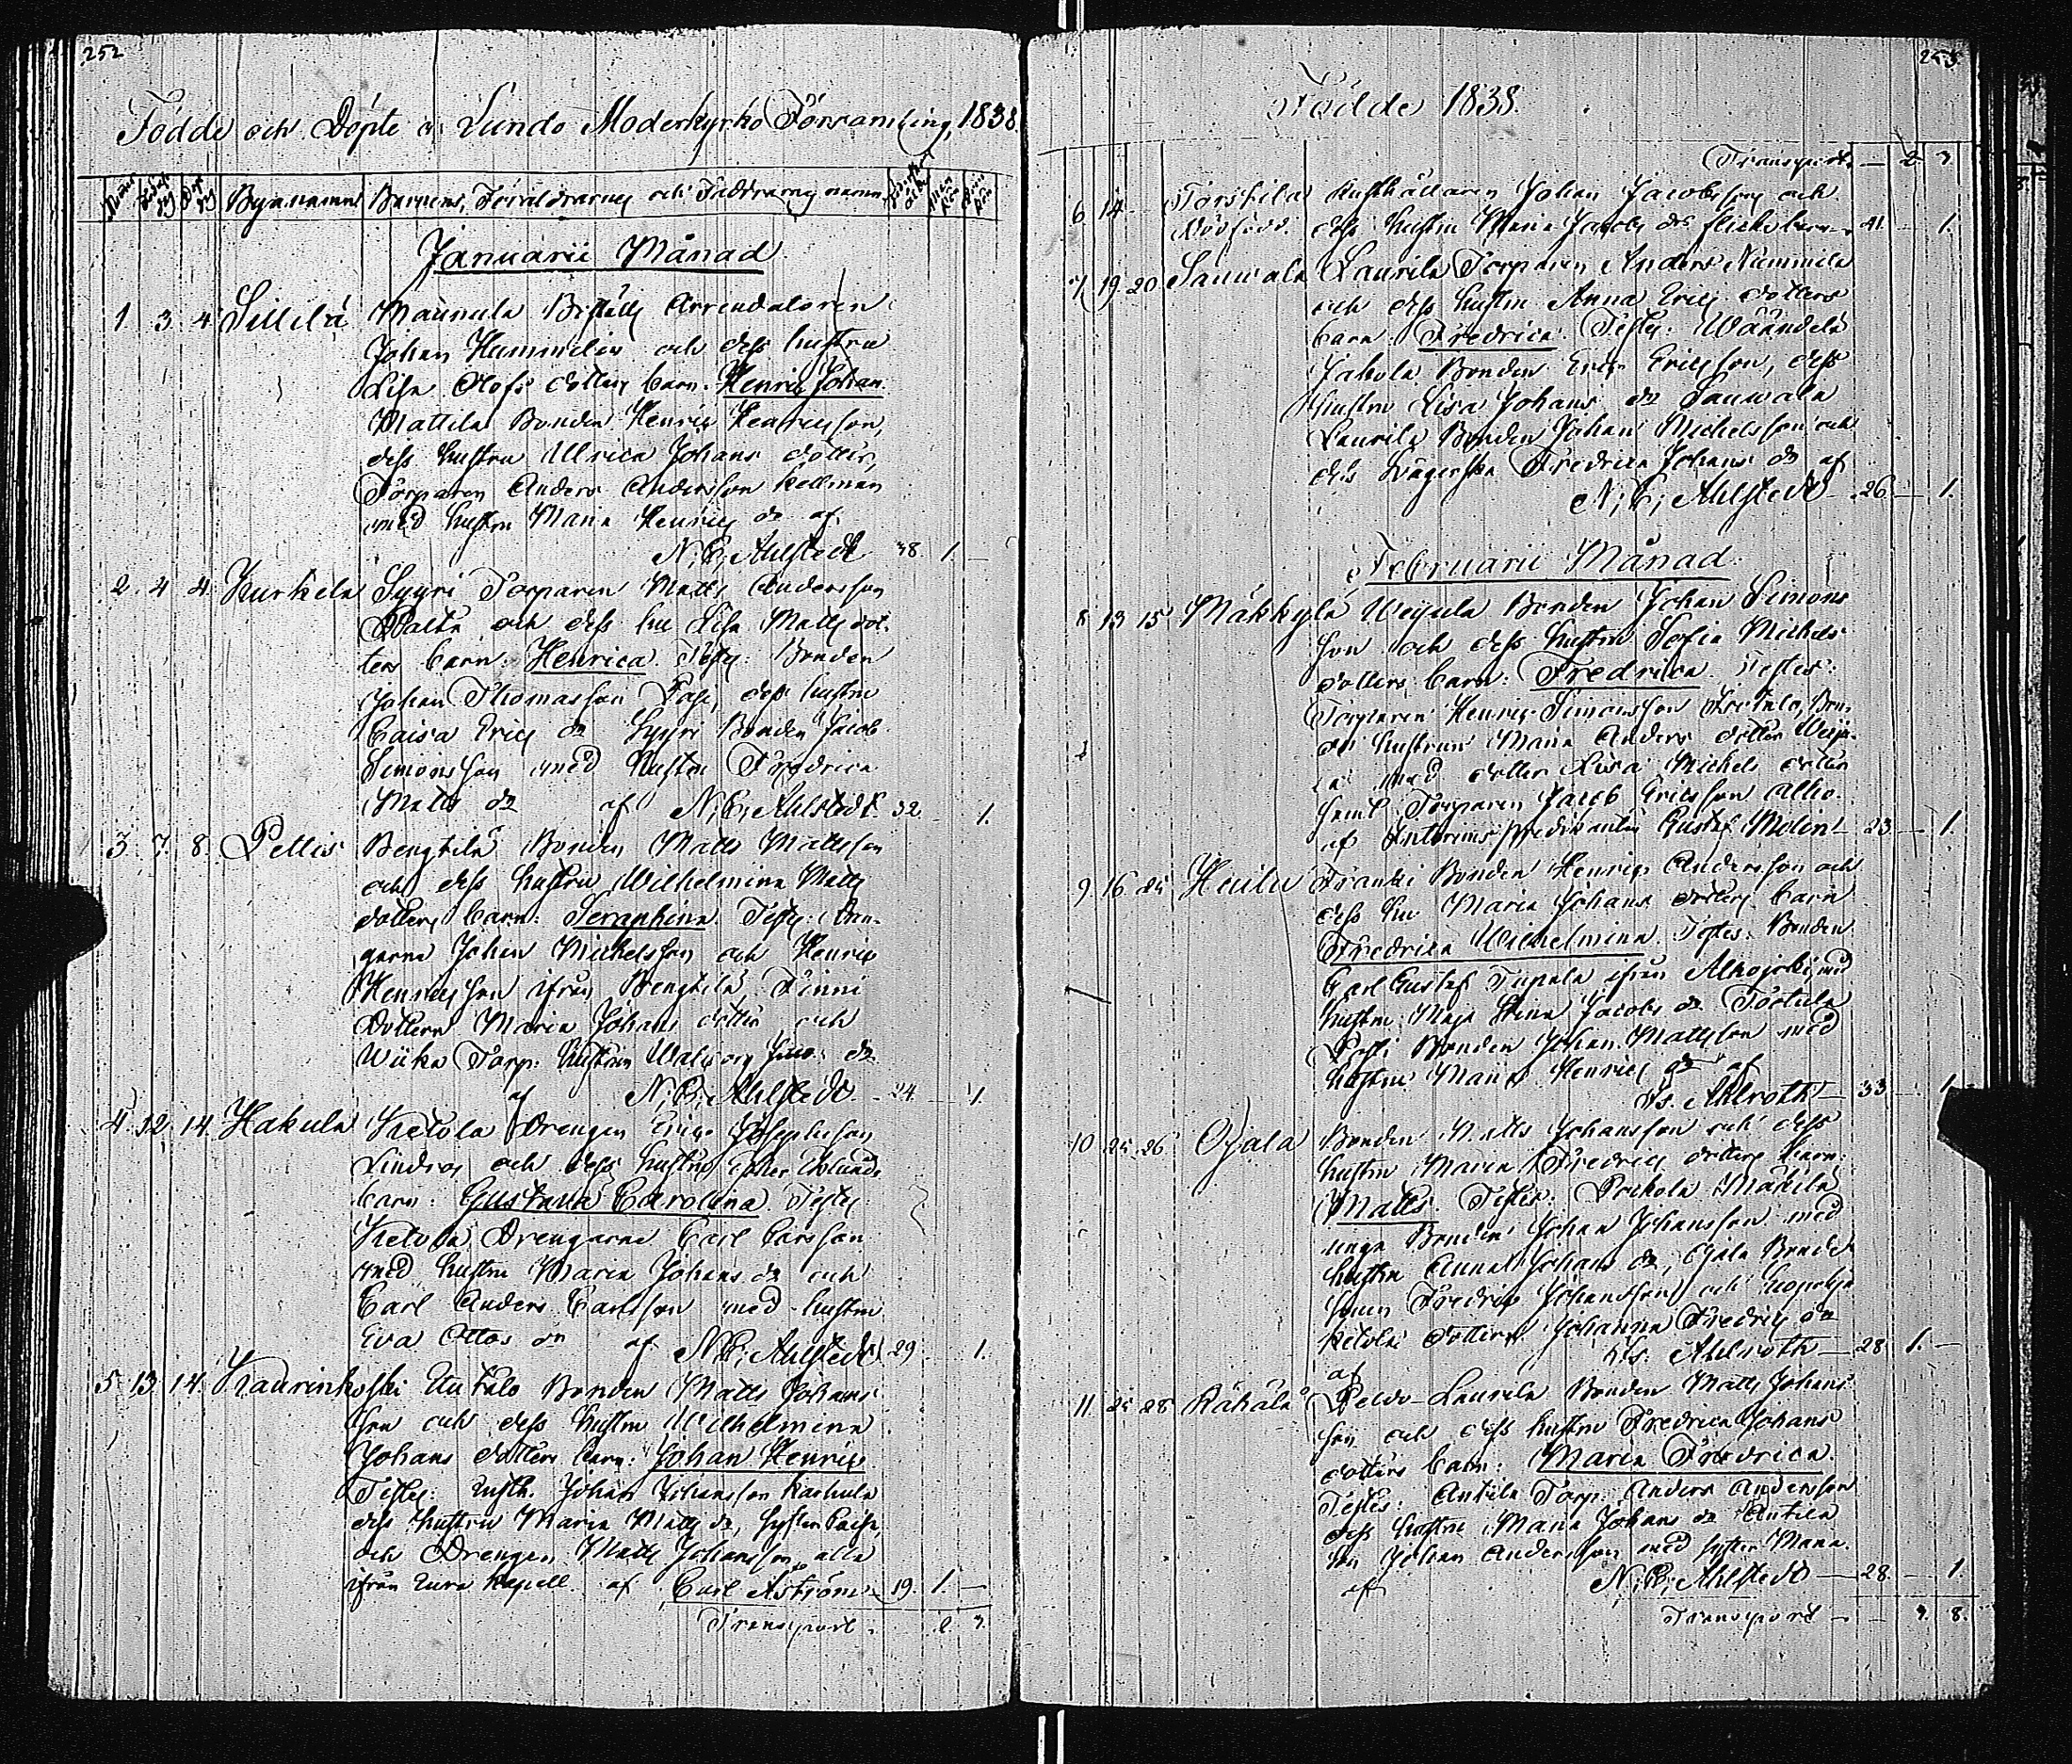 252
Födde och Döpte i Lundo Moderkyrko Församling, 1838.
Byanamn Barnens, Föräldrarnes och Faddrarnes namn
Januarii Månad
1. 3. 4. Sillilä Maunula Arrendatoren
Johan Hammelin och dess hustru
Lisa Olofs dotters barn: Henric Johan.
Mattila Bonden Henric Henricsson,
dess hustru Ulrica Johans dotter,
Torparen Anders Andersson Kellman
med hustru Maria Henrics dr af
N. E. Ahlstedt 38. 1. —
2. 4. 4. Kurkela Syyri Torparen Matts Andersson
och dess hu Lisa Matts dot-
ters barn: Henrica. Testes: Bonden
Johan Thomasson dess hustru
Caisa Erics dr Syyri Bonden Jacob
Simonsson med hustru Fredrica
Matts dr af N. E. Ahlstedt. 32. 1.
3. 7. 8. Pettis Bengtilä Bonden Matts Mattsson
och dess hustru Wilhelmina Matts
dotters barn: Seraphina. Testes: Dren-
garne Johan Michelsson och Henric
Henricsson ifrån Bengtilä Finni
Dottern Maria Johans dotter och
Torp. hustrun Walborg dr
af N. E. Ahlstedt — 24. — 1.
4. 12. 14. Hakula Ketola Drengen Eric Josephsson
Lindros och dess hustru
barn: Gustava Carolina. Testes
Ketola Drengarne Carl Carlsson
med hustru Maria Johans dr och
Carl Anders Carlsson med hustru
Eva Ottos dr af N. E. Ahlstedt 29. 1.
5. 13. 14. Kaurinkoski Uutalo Bonden Matts Johans
son och dess hustru Wilhelmina
Johans dotters barn: Johan Henric
Testes: Johan Johansson Karhula
dess hustru Maria Matts dr, syster Caisa,
och Drengen Matts Johansson, alla
ifrån Eura Kapell af Carl Aström 19. 1. —
Transport. 2. 3.
253
Födde 1838.
Transport — 2 3
6 14 — Torstila Johan Jacobsson och
Dödfödd. dess hustru Maria Jacobs drs flickebarn — 41. — 1.
7 19 20 Sauwala Laurila Torparen Anders Nummila
och dess hustru Anna Erics dotters
barn Fredrica. Testes: Wäändelä
Jakola Bonden Eric Ericsson, dess
hustru Lisa Johans dr Sauwala
Laurila Bonden Johan Michelsson och
dess Swägerska Fredrica Johans dr af
N. E. Ahlstedt — 26. — 1.
Februarii Månad.
8 13 15 Mäkkylä Bonden Johan Simons
son och dess hustru Sofia Michels
dotters barn: Fredrica. Testes:
Torparen Henric Simonsson
hustrun Maria Anders dotter
med dotter Lisa Michels dotter
samt Torparen Jacob Ericsson Alho.
af Interims Predikanten Gustaf Molin — 23 — 1.
9 16 25 Huilu Franki Bonden Henric Andersson och
dess hu Maria Johans dotters barn
Fredrica Wilhelmina. Testes: Bonden
Carl Gustaf ifrån Alhojoki med
hustru Maja Stina Jacobs dr Törtula
Bonden Johan Mattsson med
hustru Maria Henrics dr af
Is. Ahlroth — 33 — 1.
10 25 26 Ojala Bonden Matts Johansson och dess
hustru Maria Fredrics dotters barn:
Matts. Testes: Mäkilä
unga Bonden Johan Johansson med
hustru Anna Johans dr, Ojala Bonde
sonen Fredric Johansson och
Ketola dottern Johanna Fredrics dr
af Is. Ahlroth — 28 1. —
11 25 28 Rähälä Laurila Bonden Matts Johans
son och dess hustru Fredrica Johans
dotters barn: Maria Fredrica.
Testes: Antila Torp: Anders Andersson
dess hustru Maria Johans dr Antila
son Johan Andersson med syster Maria.
af N. E. Ahlstedt — 28. — 1.
Transport — — 3. 8.